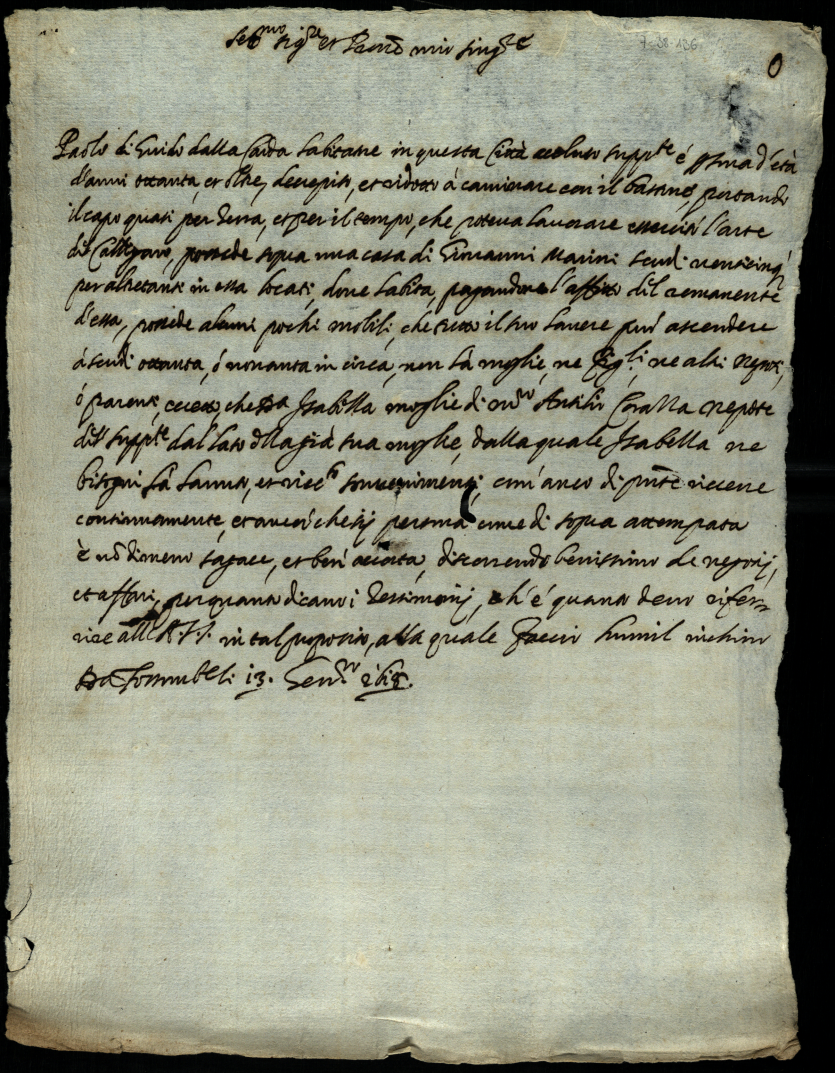 Ser.mo Sig.re et Pron̄e mio sing.re
7-98-136
Paolo di Guido dalla habitante in questa Città supp.te é psona d'età
d'anni ottanta, et oltre, decrepito, et ridotto á caminare con il bastone, portando
il capo quasi per terra, et per il tempo, che poteva lavorare essercitò l'arte
dil Calligaro, possede sopra una casa di Giovanni Marini scudi venticinq.
per altretanti in essa locati, dove habita, pagandone l'affitto dil remanente
d'essa, possede alcuni pochi mobili, che tutto il suo havere può ascendere
á scudi ottanta, ó nonanta in circa, non há moglie, ne figli, ne altri nepoti,
ó parenti, eccetto, che Isabella moglie di m.ro nepote
dil supp.te dal lato dlla già sua moglie, dalla quale Isabella ne
bisogni há havuto, et rice.to sovenimenti, com'anco di pn̄te riceve
continuamente, et ancorché sij persona come di sopra attempata
è nō dimeno sagace, et ben accorta, discorrendo benissimo de negotij,
et affari, per quanto dicono i testimonij, ch'è quanto devo rifer-
rire all' A. S. in tal proposito, alla quale faccio humil inchino
Da 13. Genn.ro